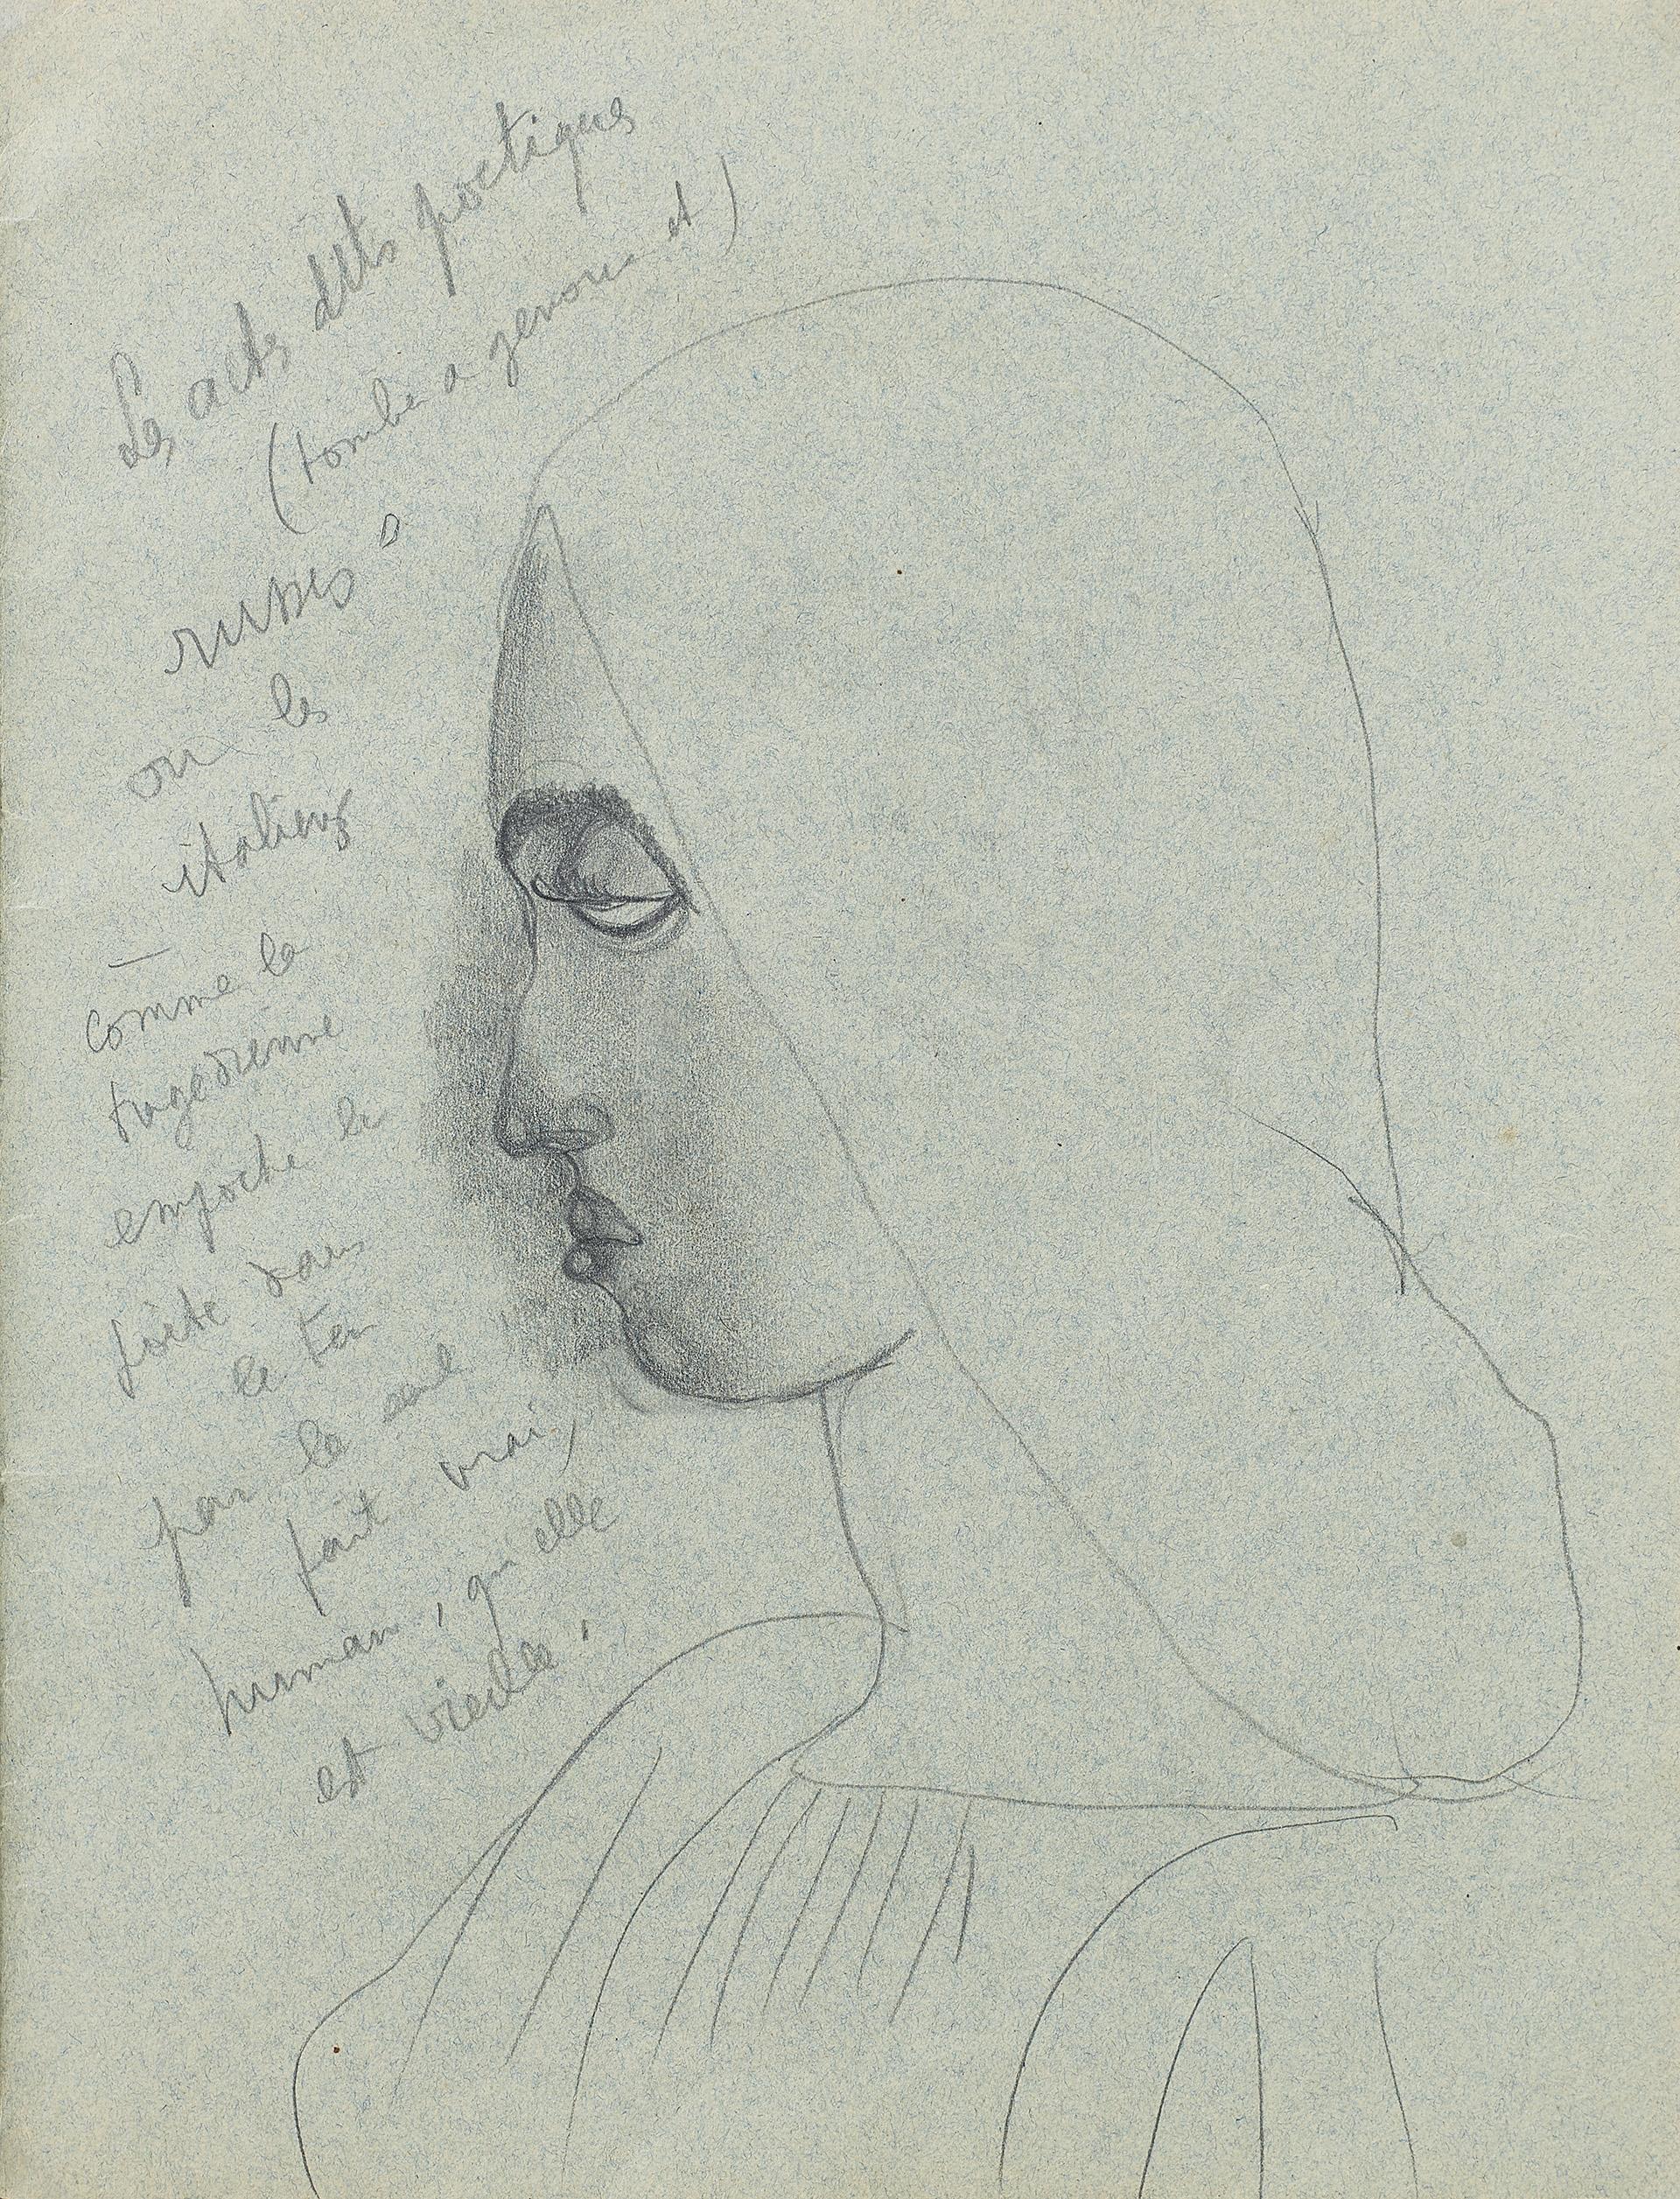 Les acts dits poetiques
(tombe a genoux et)
russes
ou les
italiens
comme la
tragedienne
empoche le
poète dans
le
par le seul
fait vrai,
humain, qu'elle
est vieille!